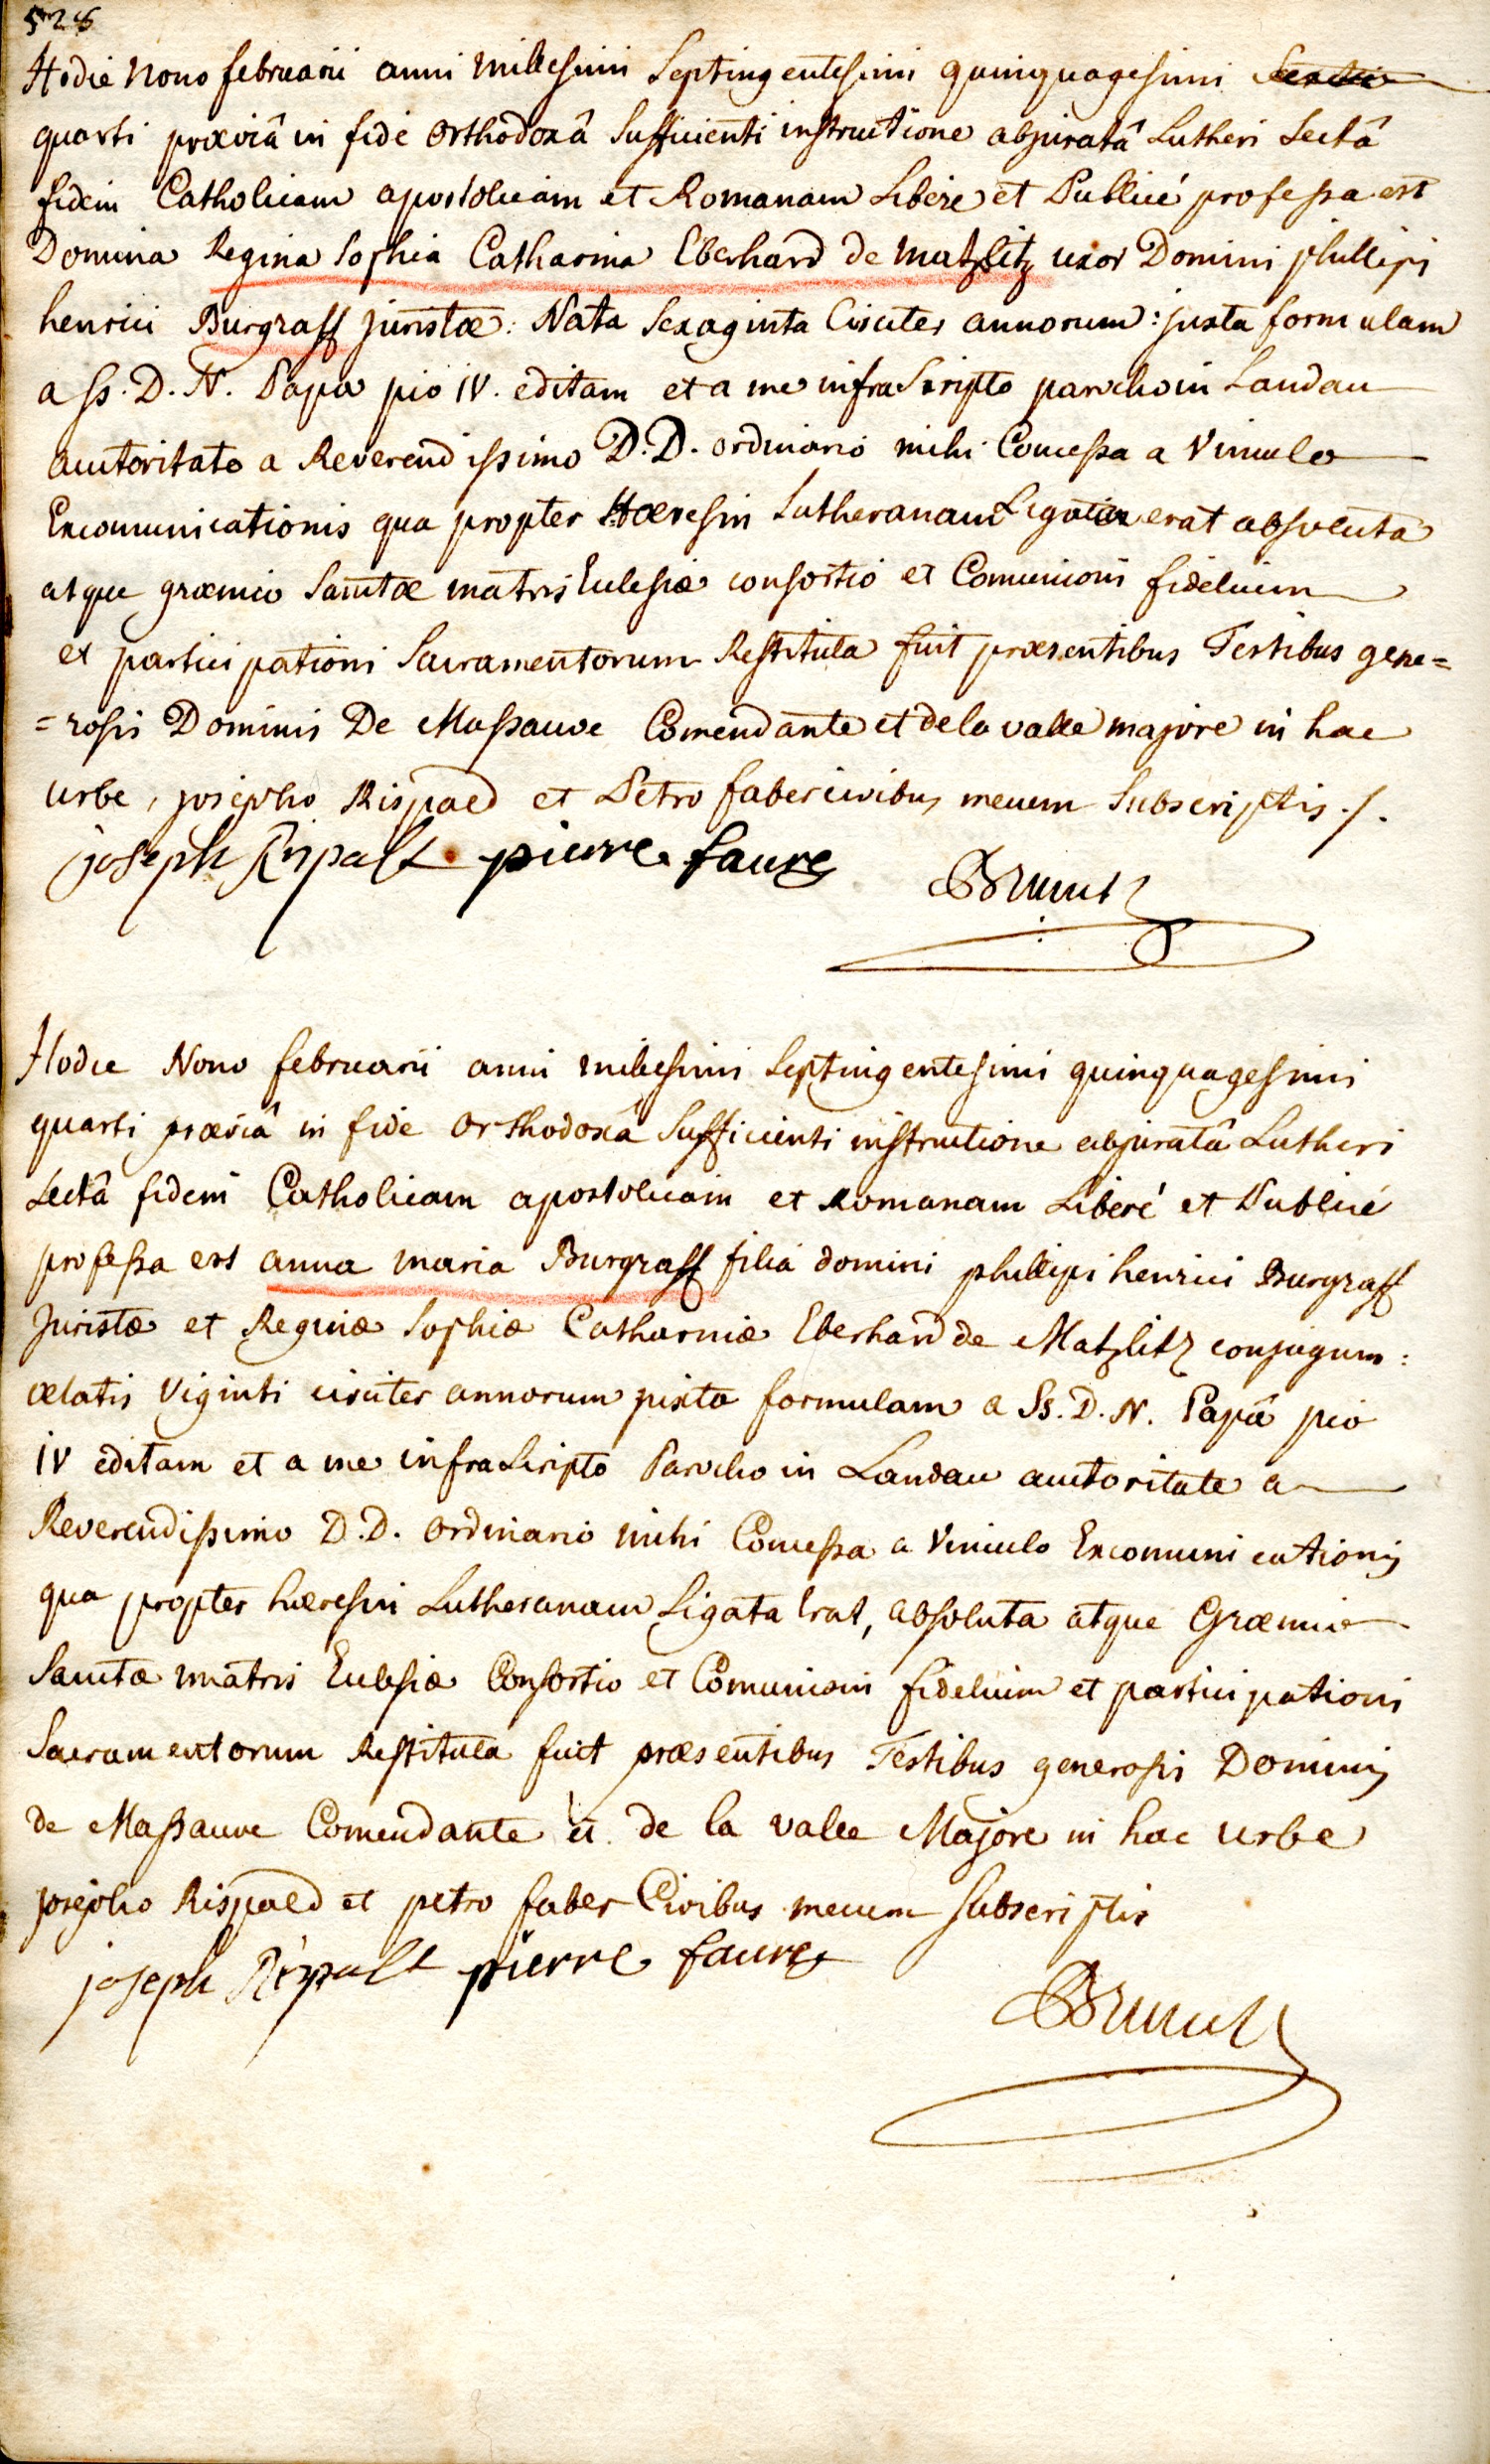 528
Hodie Nono februarii anni millesimi Septingentesimi quinquagesimi
quarti præviâ in fide Orthodoxâ Sufficienti instructione abjuratâ Lutheri Sectâ
fidem Catholicam apostolicam et Romanam Liberé et Publicé professa est
Domina Regina Sophia Catharina Eberhard de Matzlitz uxor Domini phillipi
henrici Burgraff juristæ: Nata Sexaginta Circiter annorum: juxta formulam
a Ss. D. N. Papa pio IV. editam et a me infra Scripto parocho in Landau
auctoritate a Reverendissimo D. D. ordinario mihi Concessa a Vinculo
Excomunicationis qua propter Hæresin Lutheranam Ligata erat absoluta
atque græmio Sanctæ matris Eclesiæ consortio et Comunioni fidelium
et participationi Sacramentorum Restituta fuit præsentibus Testibus gene=
=rosis Dominis De Massauve Comendante et de la valle majore in hac
urbe, josepho Rispaed et Petro faber civibus mecum Subscriptis ./.
joseph Rispalt pierre faure Brunck
Hodie Nono februarii anni millesimi Septingentesimi quinquagesimi
quarti præviâ in fide Orthodoxâ Sufficienti instructione abjuratâ Lutheri
Sectâ fidem Catholicam apostolicam et Romanam Liberé et Publicé
professa est anna maria Burgraff filia domini phillipi henrici Burgraff
Juristæ et Reginæ Sophiæ Catharinæ Eberhard de Matzlitz conjugum:
ætatis Viginti circiter annorum juxta formulam a Ss. D. N. Papâ pio
IV editam et a me infra Scripto Parocho in Landau auctoritate a
Reverendissimo D. D. Ordinario mihi Concessa a Vinculo Excomunicationis
qua propter hæresin Lutheranam Ligata Erat, absoluta atque Græmio
Sanctæ matris Eclesiæ Consortio et Comunioni fidelium et participationi
Sacramentorum Restituta fuit præsentibus Testibus generosis Dominis
de Massauve Comendante et de la valle Majore in hac urbe
josepho Rispaed et petro faber Civibus mecum Subscriptis
joseph Rispalt pierre faure